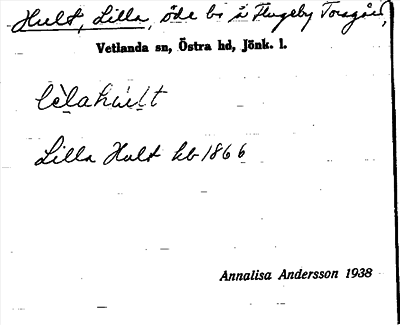 Hult, Lilla, öde bs å Flugeby Torsgård,
Vetlanda sn, Östra hd, Jönk. l.
Lilla Hult hb 1866
Annalisa Andersson 1938